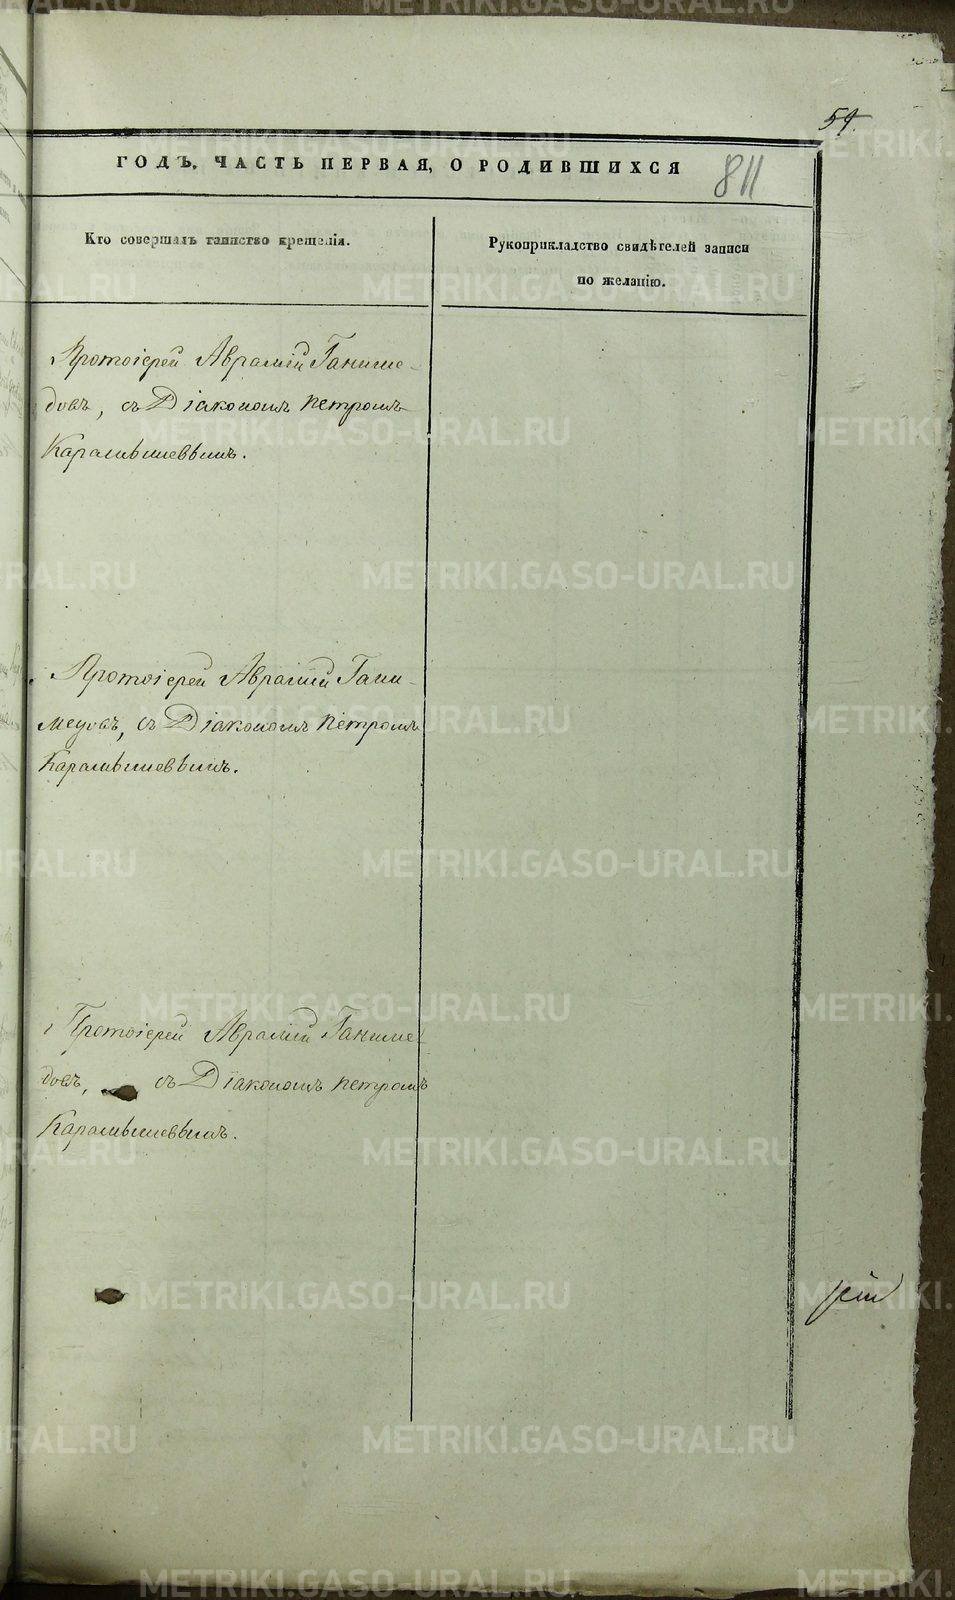 54.
811
ГОДЪ. ЧАСТЬ ПЕРВАЯ, О РОДИВШИХСЯ
Кто совершалъ таинство крещенія.
Рукоприкладство свидѣтелей записи
по желанію.
Протоіерей Авраміи Ганиме-
довъ, съ Діакономъ Петромъ
Карамышеввымъ.
Протоіерей Авраміи Гани-
медовъ, съ Діакономъ Петромъ
Карамышеввымъ.
Протоіерей Авраміи Ганиме-
довъ, съ Діакономъ Петромъ
Карамышеввымъ.
METRIKI.GASO-URAL.RU